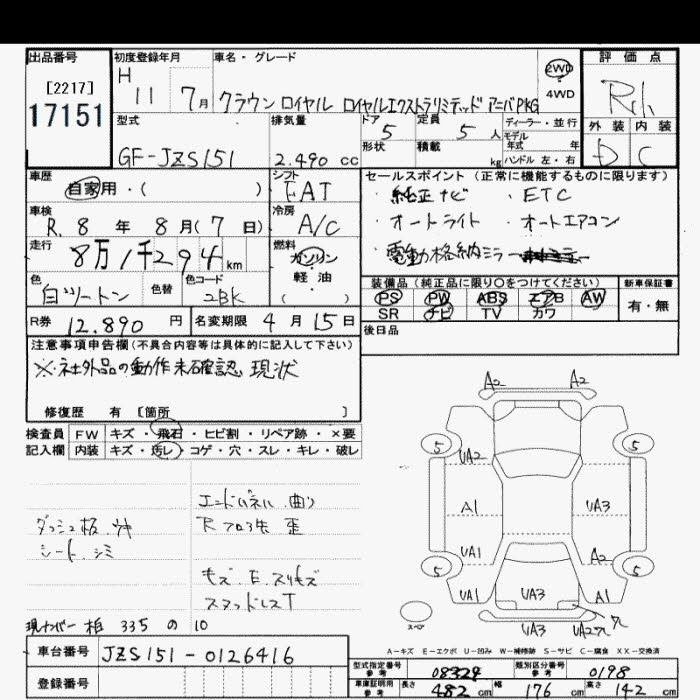 出品番号
[2217]
17151
初度登録年月
H 11 7月
車名・グレード
クラウン ロイヤル ロイヤルエクストラリミテッド アニバPKG
2WD
4WD
評価点
外装 内装
D C
型式
GF-JZS151
排気量
2.490 cc
ドア
5
定員
5 人
形状
積載
kg
ディーラー・並行
モデル
年式 年
ハンドル 左・右
車歴
自家用・( )
シフト
FAT
車検
R. 8 年 8 月 ( 7 日)
冷房
A/C
走行
8万1千294 km
燃料
ガソリン
軽・油
( )
色
白ツートン
色替
色コード
2BK
R券
12.890 円
名変期限 4月15日
セールスポイント (正常に機能するものに限ります)
・純正ナビ ・ETC
・オートライト ・オートエアコン
・電動格納ミラー
装備品 (純正品に限り○をつけてください)
PS PW ABS エアB AW
SR ナビ TV カワ
新車保証書
有・無
後日品
注意事項申告欄 (不具合内容等は具体的に記入して下さい)
※社外品の動作未確認 現状
修復歴 有 [箇所 ]
検査員 FW キズ・飛石・ヒビ割・リペア跡・×要
記入欄 内装 キズ・汚レ・コゲ・穴・スレ・キレ・破レ
エンドパネル 曲り
R フロア先 歪
ダッシュ板
シート.シミ
キズ.E.スリキズ
スタッドレスT
現ナンバー 柏 335 の 10
A2 A2
5 5
UA2
A1 UA3
UA1 A2
5 5
UA1 UA3 A1
UA3
スペア
A-キズ E-エクボ U-凹み W-補修跡 S-サビ C-腐食 XX-交換済
車台番号 JZS151-0126416
登録番号
型式指定番号
参考
08324
類別区分番号
参考
0198
車庫証明用
参考
長さ 482 cm 幅 176 cm 高さ 142 cm